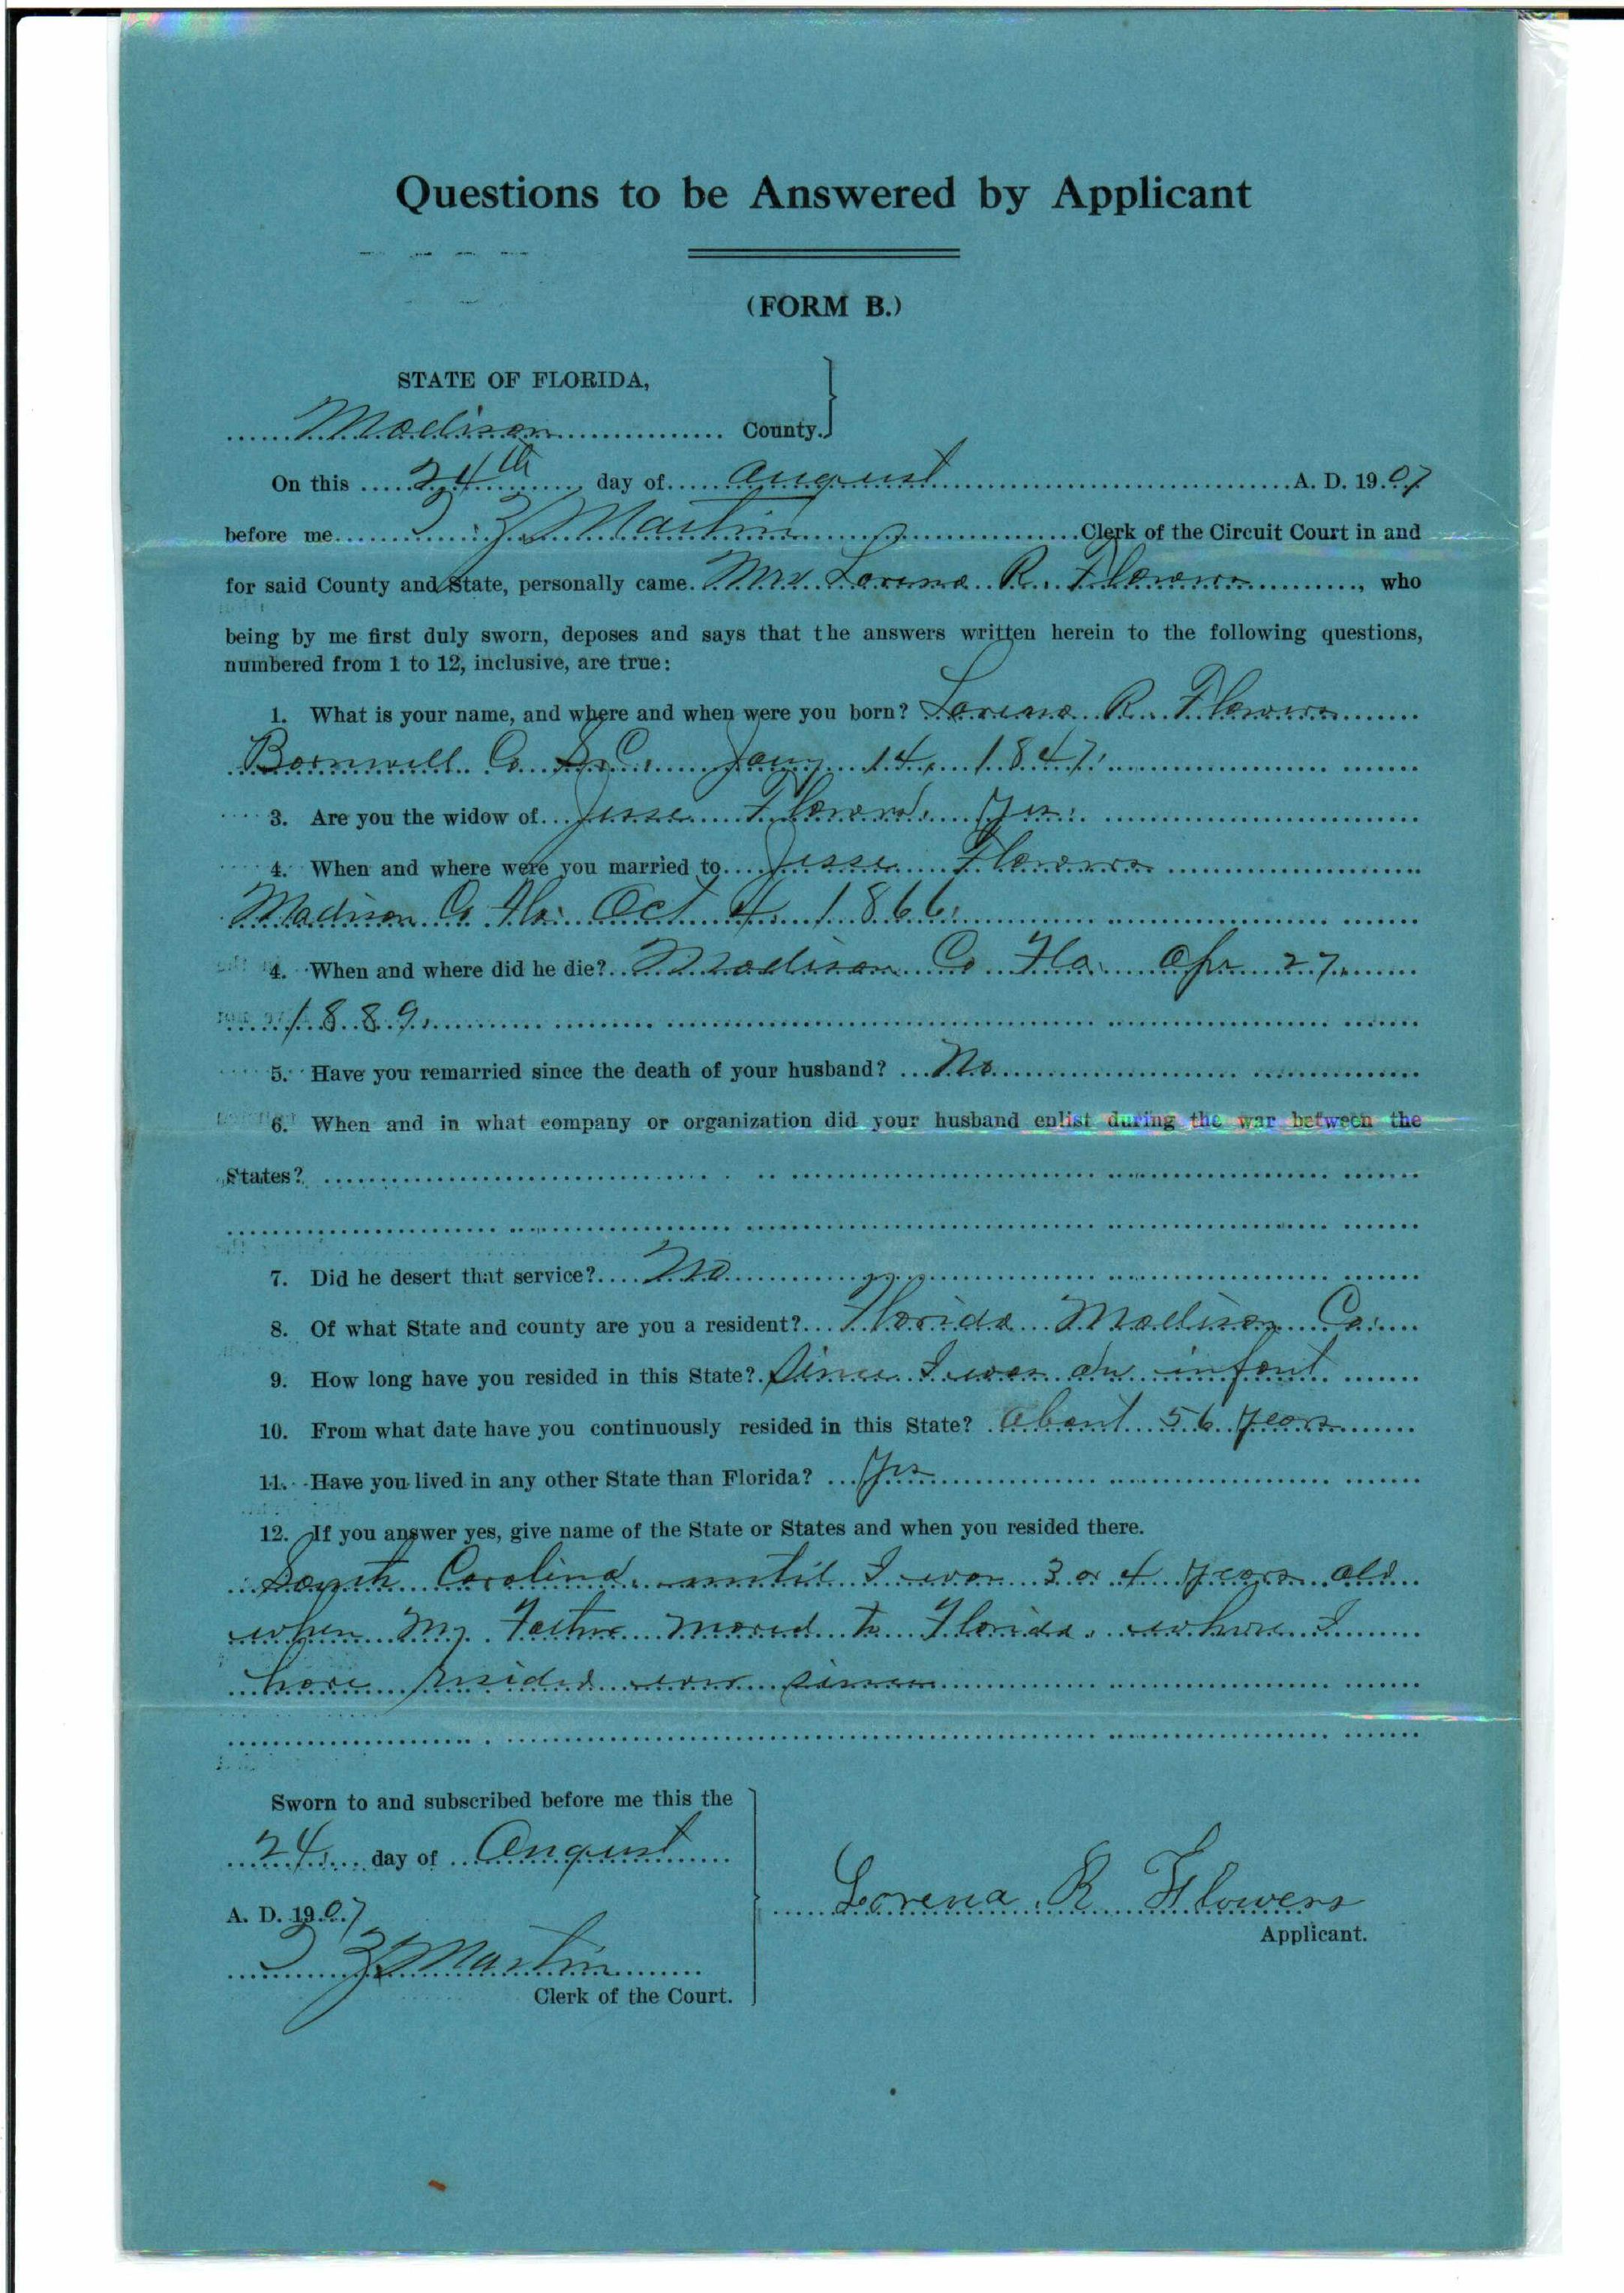 Questions to be Answered by Applicant
(FORM B.)
STATE OF FLORIDA,
Madison County.
On this 24th day of August A. D. 1907
before me Martin Clerk of the Circuit Court in and
for said County and State, personally came Mrs Lorena R. Flowers, who
being by me first duly sworn, deposes and says that the answers written herein to the following questions,
numbered from 1 to 12, inclusive, are true:
1. What is your name, and where and when were you born? Lorena R. Flowers
Barnwell Co S. C. Jany 14, 1847.
3. Are you the widow of Jesse Flowers. Yes.
4. When and where were you married to Jesse Flowers
Madison Co Fla. Oct 4. 1866.
4. When and where did he die? Madison Co Fla. Apr 27.
1889.
5. Have you remarried since the death of your husband? No
6. When and in what company or organization did your husband enlist during the war between the
States?
7. Did he desert that service? No
8. Of what State and county are you a resident? Florida Madison Co.
9. How long have you resided in this State? Since I was an infant
10. From what date have you continuously resided in this State? About 56 years
11. Have you lived in any other State than Florida? Yes
12. If you answer yes, give name of the State or States and when you resided there.
South Carolina. until I was 3 or 4 years old
when my Father moved to Florida. where I
have resided ever since
Sworn to and subscribed before me this the
24. day of August
A. D. 1907
Lorena R Flowers
Applicant.
Martin
Clerk of the Court.